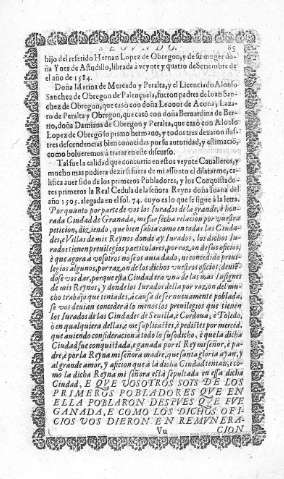 SEGUNDO. 65
hijo del referido Hernan Lopez de Obregon, y de su muger do-
ña Ynes de Astudillo, librada à veynte y quatro de Setiembre de
el año de 1584.
Doña Marina de Mercado y Peralta, y el Licenciado Alonso
Sanchez de Obregon de Palenquela, fueron padres de Iuan San-
chez de Obregon, que casò con doña Leonor de Acosta; Laza-
ro de Peralta y Obregon, que casò con doña Bernardina de Ber-
rio, doña Damiana de Obregon y Peralta, que casò con Alonso
Lopez de Obregō su primo hermano, y todos tres dexaron sus ilus-
tres descendencias bien conocidas por su autoridad, y estimaciō,
como bolueremos à tratar en este discurso.
Tal fue la calidad que concurriò en estos veynte Caualleros, y
mucho mas pudiera dezir si fuera de mi assunto el dilatarme, ca-
lifica auer sido de los primeros Pobladores, y los Conquistado-
res primeros la Real Cedula de la señora Reyna doña Iuana del
año 1505. alegada en el fol. 74. cuyo es lo que se sigue à la letra.
Por quanto por parte de vos los Iurados de la grande, è hon-
rada Ciudad de Granada me fue fecha relacion por vuestra
peticion, diziendo, que bien sabìa como en todas las Ciuda-
des, è Villas de mis Reynos donde ay Iurados, los dichos Iu-
rados tienen preuilegios particulares, por razon de sus oficios;
è que agora à vosotros no se os auia dado, ni concedido preui-
legios algunos, por razon de los dichos vuestros oficios, deuiēdo
se vos dar, porque essa Ciudad era vna de las mas insignes
de mis Reynos, y donde los Iurados della por razon del mu-
cho trabajo que teniades, à causa de ser nouamente poblada,
se vos deuian conceder à lo menos los preuilegios que tienen
los Iurados de las Ciudades de Seuilla, è Cordoua, è Toledo,
ò en qualquiera dellas, è me suplicastes, è pedistes por merced,
que auiendo consideracion à todo lo susodicho, è que la dicha
Ciudad fue conquistada, è ganada por el Rey mi señor, è pa-
dre, è por la Reyna mi señora madre, que santa gloria ayan, y
al grande amor, y aficion que à la dicha Ciudad teniades, co-
mo la dicha Reyna mi señora està sepultada en essa dicha
Ciudad, E QUE VOSOTROS SOIS DE LOS
PRIMEROS POBLADORES QUE EN
ELLA POBLARON DESPUES QUE FUE
GANADA, E COMO LOS DICHOS OFI-
CIOS VOS DIERON EN REMUNERA-
Vu CION